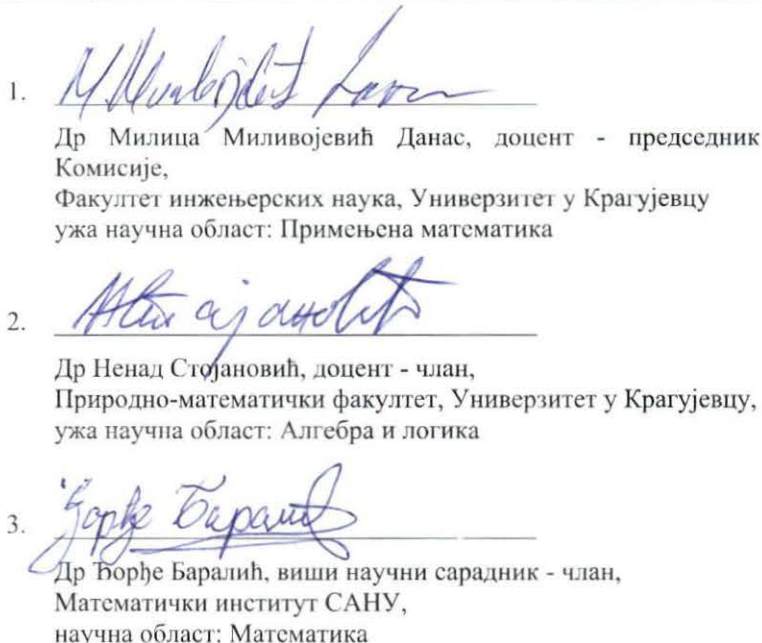 1. М. Миливојевић Данас
Др Милица Миливојевић Данас, доцент - председник
Комисије,
Факултет инжењерских наука, Универзитет у Крагујевцу
ужа научна област: Примењена математика
2.
Др Ненад Стојановић, доцент - члан,
Природно-математички факултет, Универзитет у Крагујевцу,
ужа научна област: Алгебра и логика
3. Ђорђе Баралић
Др Ђорђе Баралић, виши научни сарадник - члан,
Математички институт САНУ,
научна област: Математика